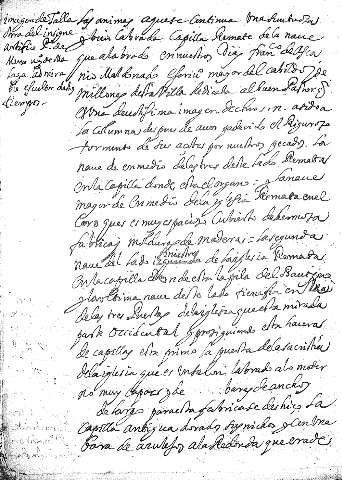 imagen de talla
obra del insigne
artifice P.º de
tiempos.
las animas aqueste continua una sumtuosa
y bien labrada capilla Remate de la naue
que alabrado en nuestros dias fran.co de
Maldonado escriu.º mayor del cabildo y de
millones desta Villa dedicada al buen
Una deuotissima imagen de chris.to atado a
la columna despues de auer padecido el Riguroso
tormento de sus açotes por nuestros pecados. la
naue de en medio de las tres deste lado Remata
en la capilla donde esta el organo = y la naue
mayor de en medio de la yglesia Remata en el
Coro que es muy espacioso cubierto de hermosa
fabrica y molduras de madera = la segunda
naue del lado siniestro de la yglesia Remata
en la capilla donde esta la pila del Bautismo
y la vltima naue deste lado tiene fin en Una
de las tres puertas de la yglesia que esta mira a la
parte occidental y prosiguiendo esta hacera
de capillas esta primero la puerta de la sacristia
de la yglesia que es un salon labrado a lo moder
no muy capaz y de baras de ancho y
de largo para esta fabrica se deshiço la
capilla antigua dorados sus nichos y con Una
Bara de azulejos a la Redonda que era de